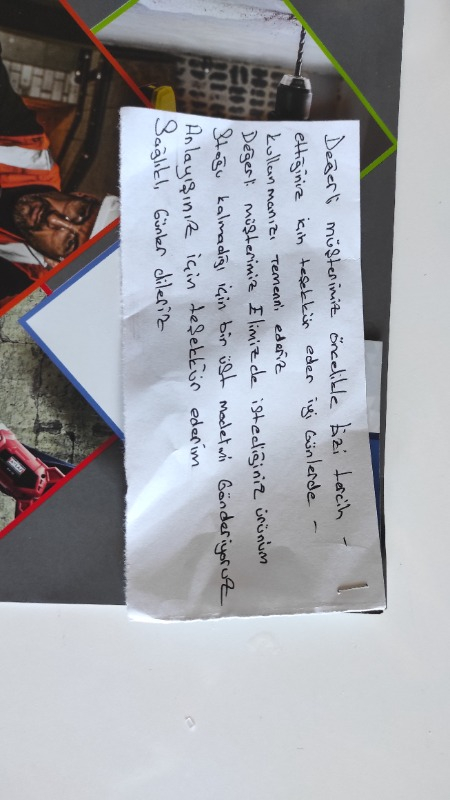 Değerli müşterimiz öncelikle bizi tercih -
ettiğiniz için teşekkür eder iyi Günlerde -
kullanmanızı temenni ederiz
Değerli müşterimiz Elimizde istediğiniz ürünüm
Stoğu kalmadığı için bir üst modelwi Gönderiyoruz
Anlayışınız için teşekkür ederim
Sağlıklı Günler dileriz